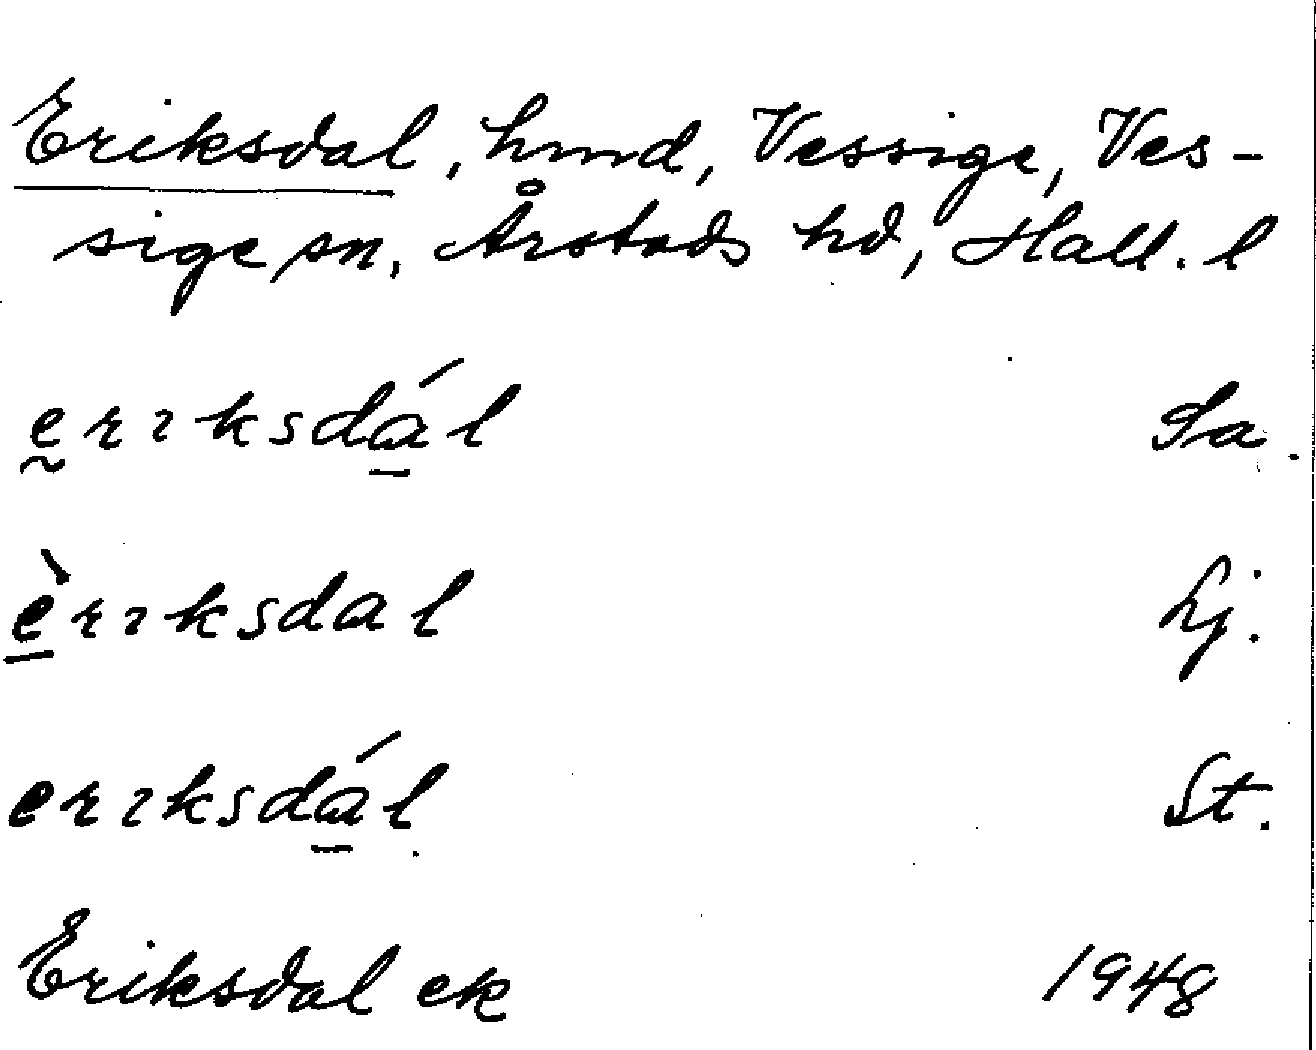 Eriksdal, hmd, Vessige, Ves-
sige sn, Årstads hd, Hall. l
ḛrıksdá̱l Sa.
è̱rıksdal Lj.
erıksdá̱l. St.
Eriksdal ek 1948